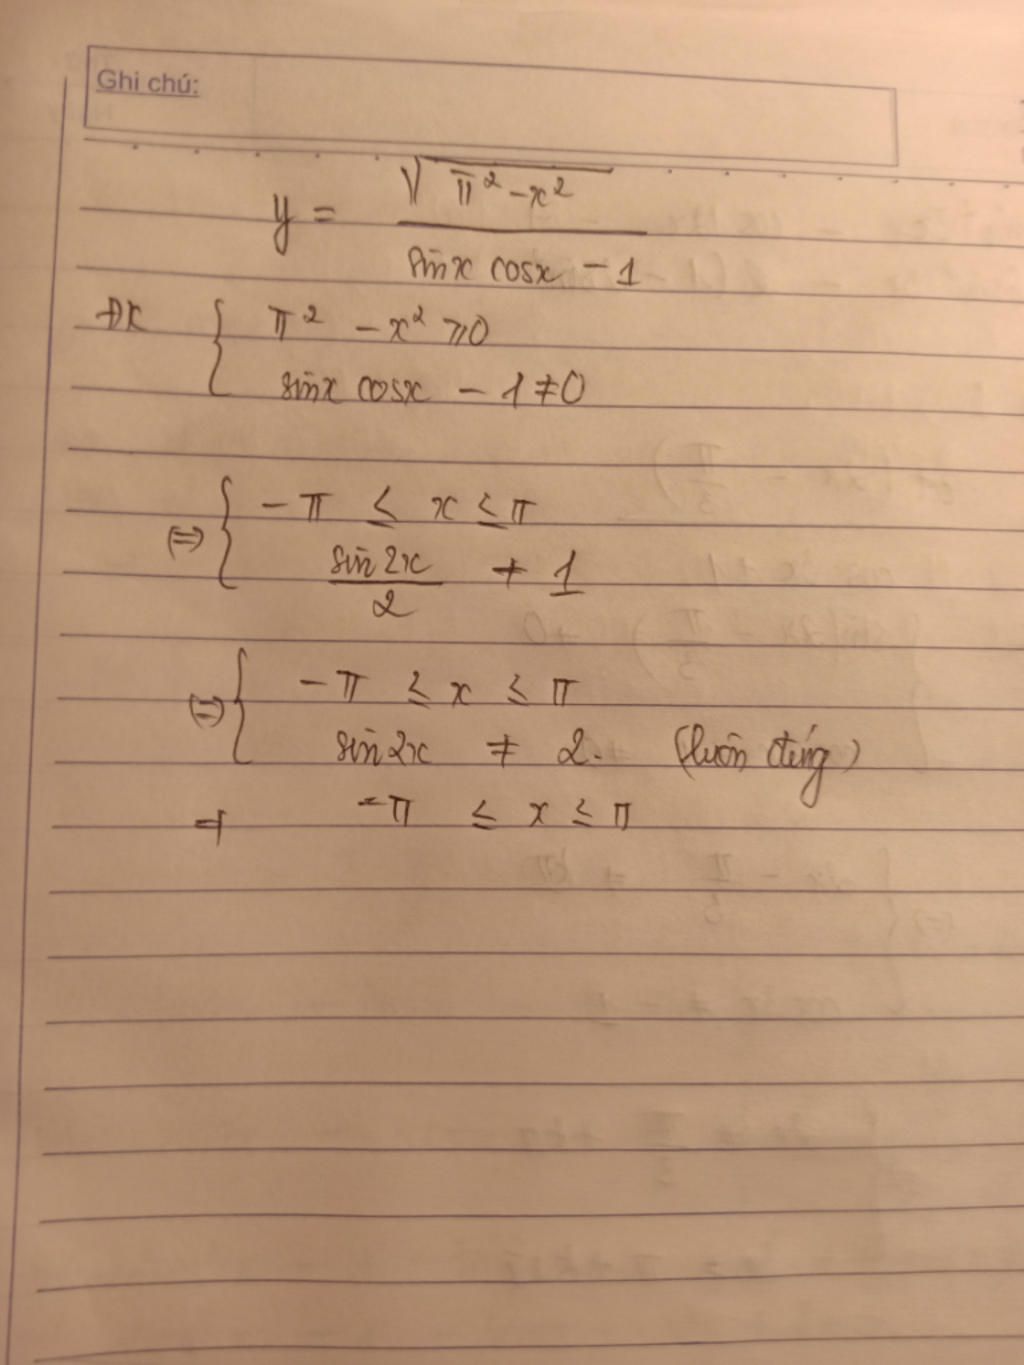 Ghi chú:
y = √(π² - x²) / (sinx cosx - 1)
ĐK { π² - x² ⩾ 0
sinx cosx - 1 ≠ 0
⇔ { -π ≤ x ≤ π
sin2x / 2 ≠ 1
⇔ { -π ≤ x ≤ π
sin2x ≠ 2. (luôn đúng)
⇒ -π ≤ x ≤ π